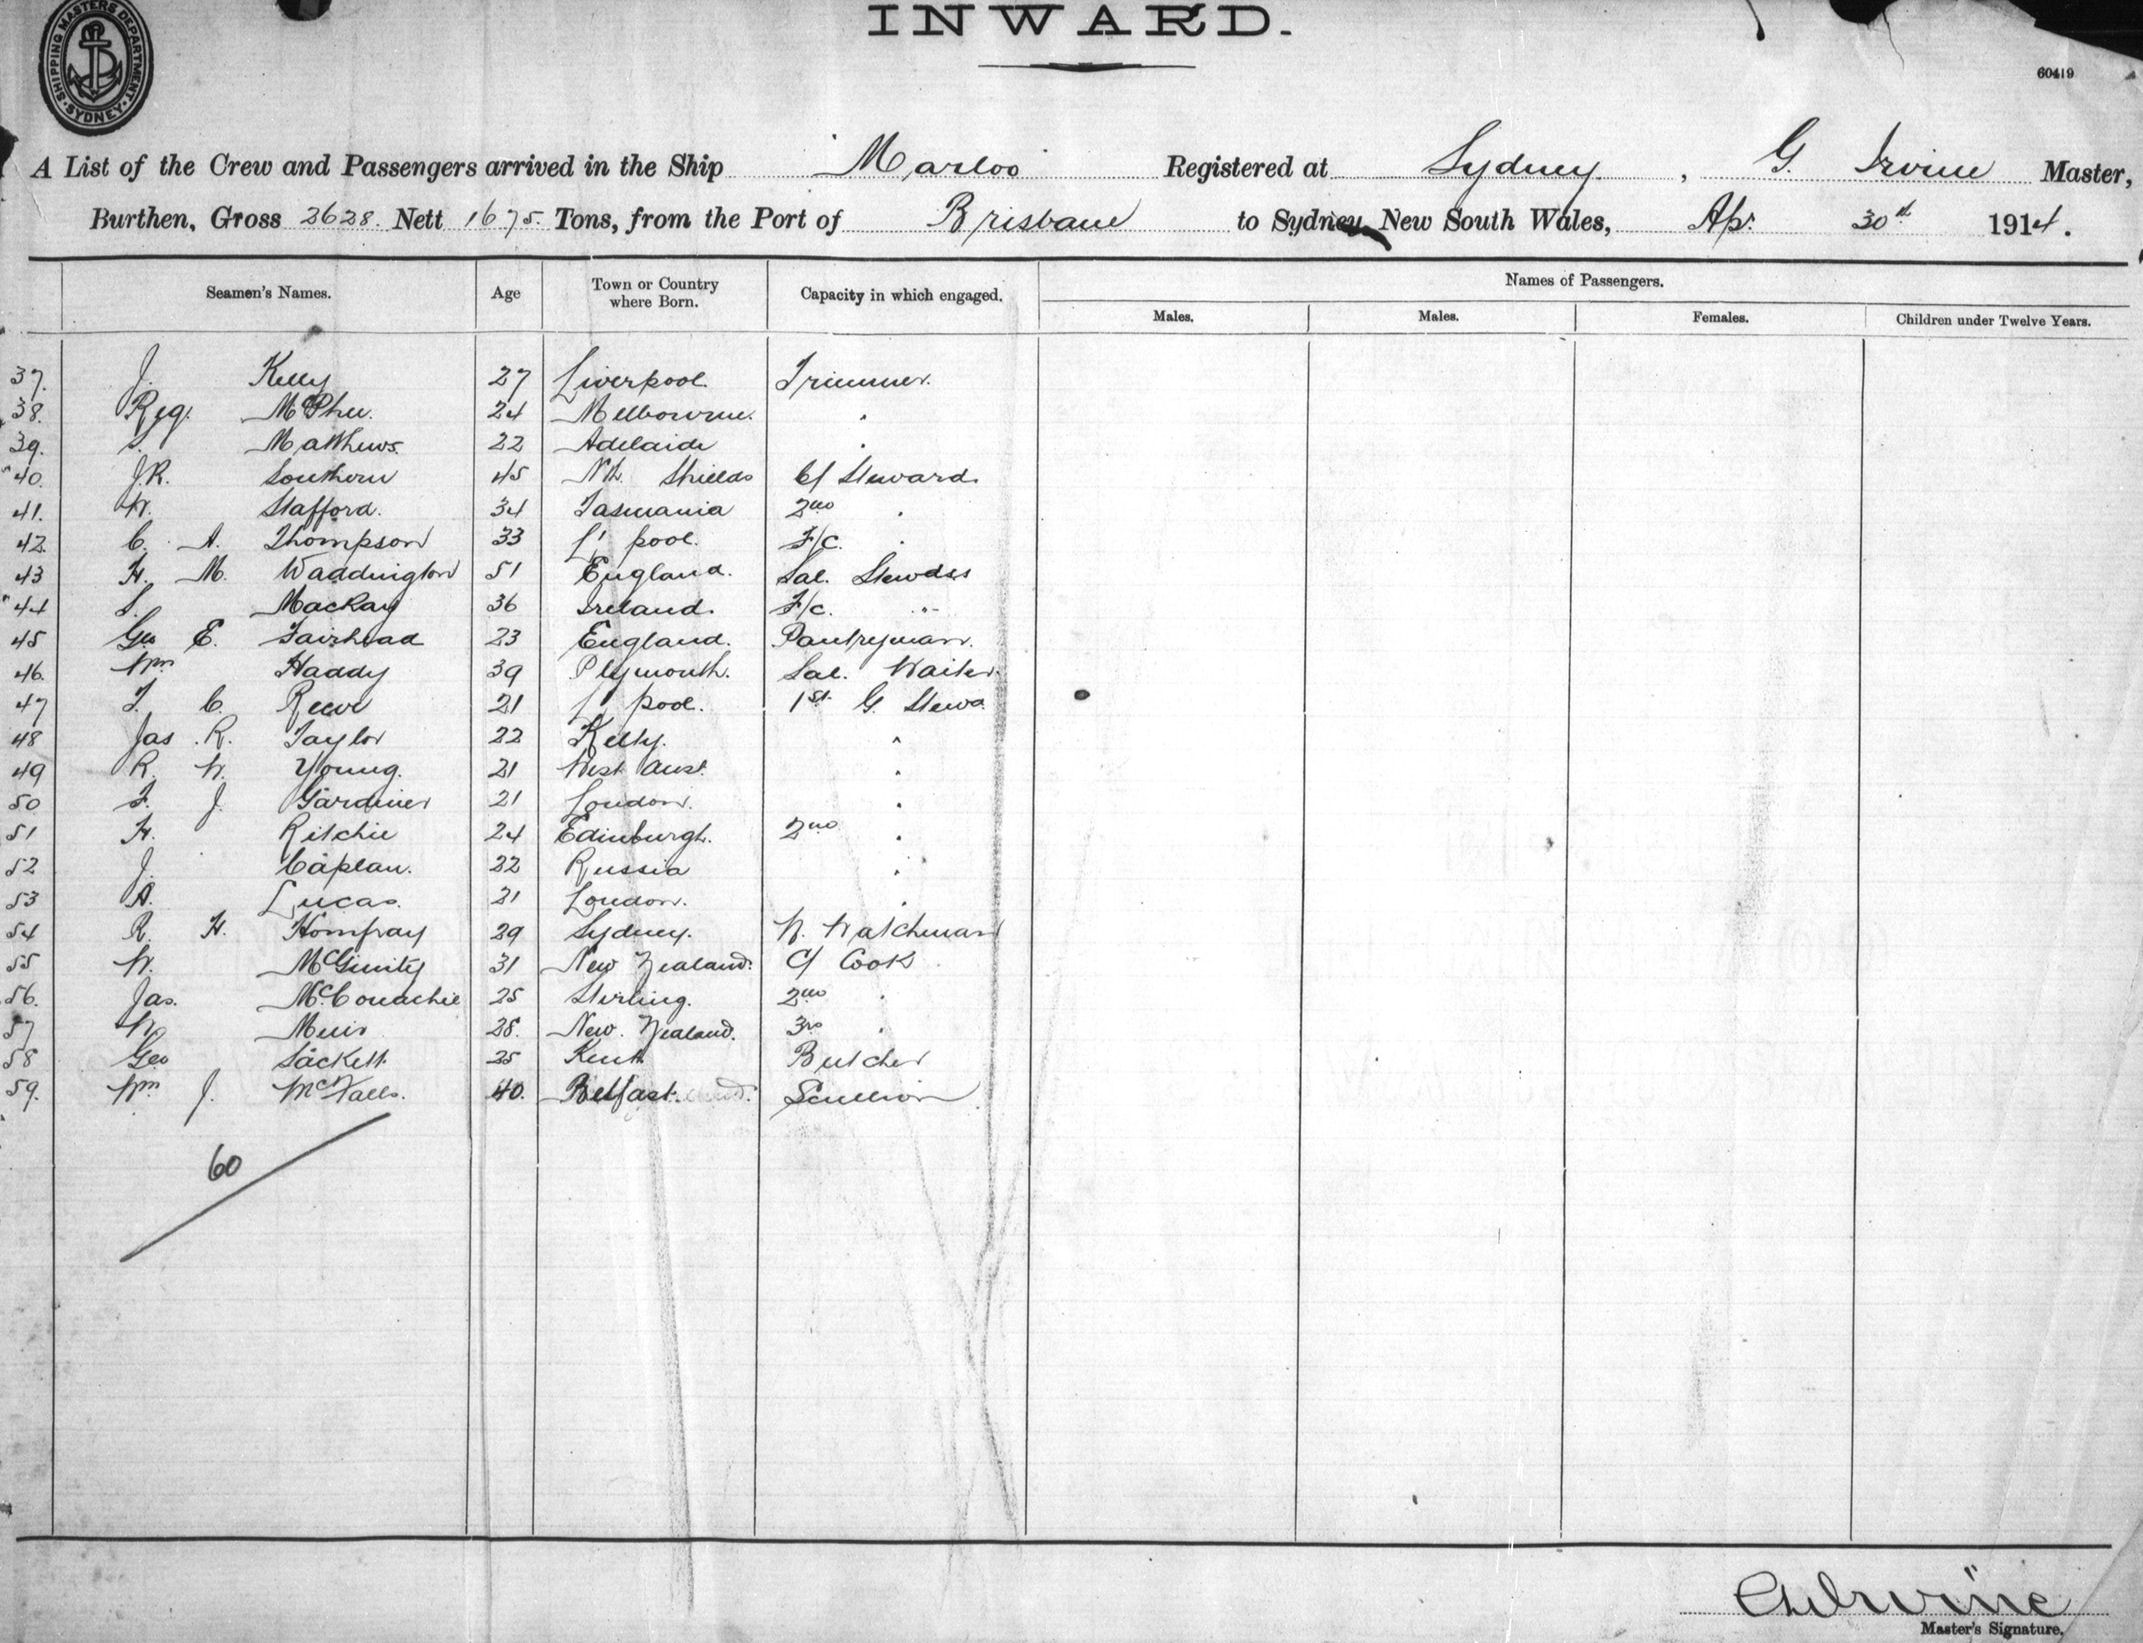 INWARD.
SHIPPING MASTERS DEPARTMENT
SYDNEY
60419
A List of the Crew and Passengers arrived in the Ship Marloo Registered at Sydney, G. Irvine Master,
Burthen, Gross 2628. Nett 1675. Tons, from the Port of Brisbane to Sydney New South Wales, Apr. 30th 1914.
Seamen's Names. Age Town or Country where Born. Capacity in which engaged. Names of Passengers.
Males. Males. Females. Children under Twelve Years.
37. J. Kelly 27 Liverpool. Trimmer.
38. Reg. McPhee. 24 Melbourne. "
39. S. Matthews. 22 Adelaide "
40. J.R. Southern 45 Nth. Shields C/ Steward.
41. W. Stafford. 34 Tasmania 2nd "
42. C. A. Thompson 33 L'pool. F/c. "
43 H. M. Waddington 51 England. Sal. Stewdss
44 S. Mackay 36 Ireland. F/c. "
45 Geo E. Fairhead 23 England. Pantryman.
46. Wm Haddy 39 Plymouth. Sal. Waiter.
47 T. C. Reeve 21 L'pool. 1st. G. Stewd.
48 Jas. R. Taylor 22 Kelty. "
49 R. W. Young. 21 West Aust. "
50 F. J. Gardiner 21 London. "
51 H. Ritchie 24 Edinburgh. 2nd "
52 J. Caplan. 22 Russia "
53 A. Lucas. 21 London. "
54 R. H. Homfray 29 Sydney. N. Watchman
55 W. McGinity 31 New Zealand. C/ Cook
56. Jas. McConachie 25 Stirling. 2nd "
57 W. Muir 28. New Zealand. 3rd "
58 Geo Sackett 25 Kent Butcher
59. Wm J. McFalls. 40. Belfast. Scullion
60
Master's Signature.